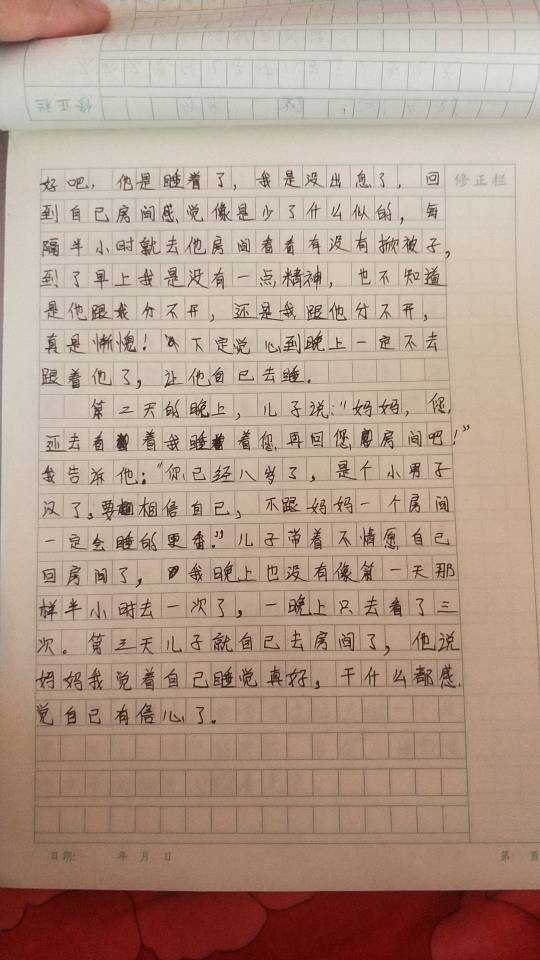 好吧，他是睡着了，我是没出息了，回
修正栏
到自己房间感觉像是少了什么似的，每
隔半小时就去他房间看看有没有掀被子，
到了早上我是没有一点精神，也不知道
是他跟我分不开，还是我跟他分不开，
真是惭愧！下定觉心到晚上一定不去
跟着他了，让他自己去睡．
第二天的晚上，儿子说："妈妈，您
还去着我睡着您再回您房间吧！"
我告诉他："你已经八岁了，是个小男子
汉了，要相信自己，不跟妈妈一个房间
一定会睡的更香."儿子带着不情愿自己
回房间了，我晚上也没有像第一天那
样半小时去一次了，一晚上只去看了三
次。第三天儿子就自己去房间了，他说
妈妈我觉着自己睡觉真好，干什么都感
觉自己有信心了。
日期: 年 月 日
第 页